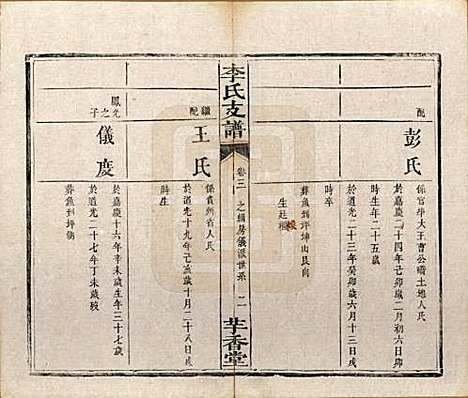 配
彭氏
係官華大王曹公廟土地人氏
於嘉慶二十四年己卯歲二月初六日戌
時生年二十五歲
於道光二十三年癸卯歲六月十三日戌
時卒
葬魚洲坪坤山艮向
生廷樞
李氏支譜
卷三
之綱房儀派世系
二
芉香堂
繼配
王氏
係貴州省人氏
於道光十九年己亥歲十月二十八日戌
時生
鳳光之子
儀度
於嘉慶十六年辛未歲生年三十七歲
於道光二十七年丁未歲歿
葬魚洲坪